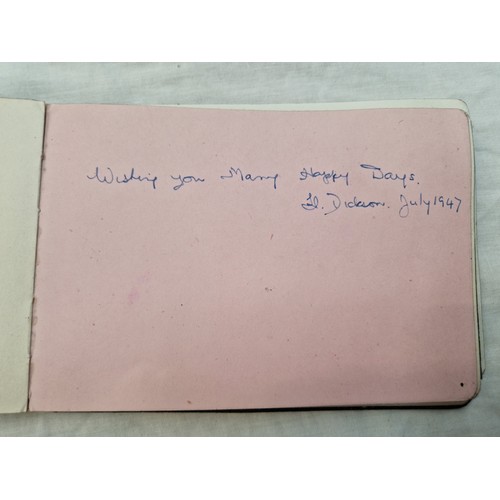 Wishing you Many Happy Days.
H. Dickson. July 1947